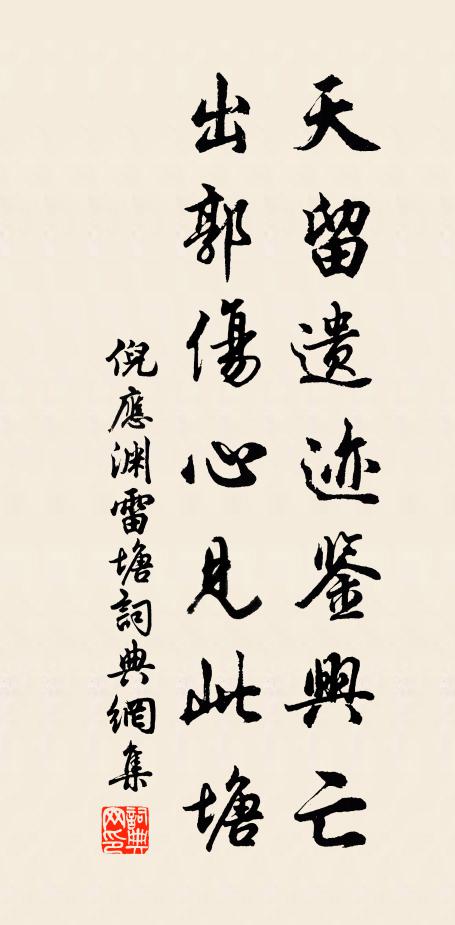 天留遗迹鉴興亡
出郭傷心見此塘
倪應渊雷塘詞典網集
詞典网印